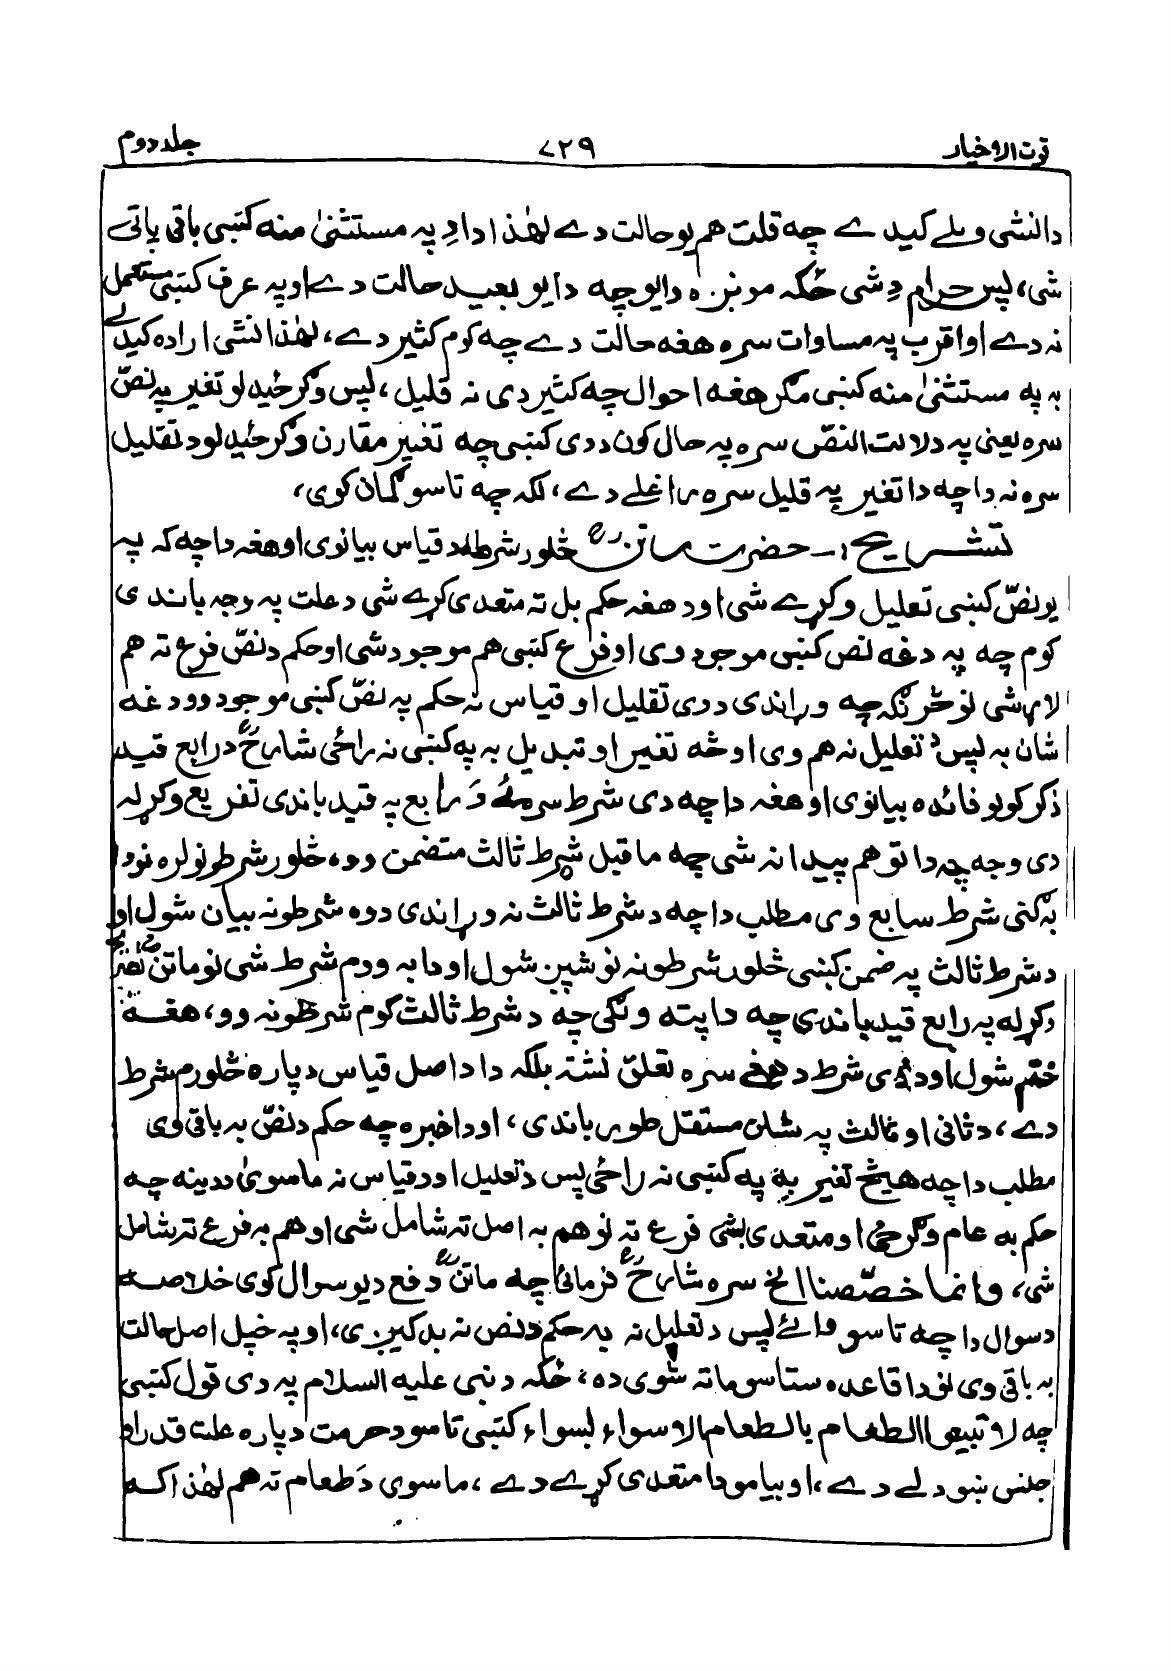 قوت الاخیار ۷۲۹ جلد دوم
دا نشی ویلے کیدے چه قلت هم یو حالت دے لهٰذا دا دِ په مستثنیٰ منه کښی باقی پاتے
شی، پس حرام دِ شی ځکه مونږه دا یو چه دا یو بعید حالت دے او په عرف کښی مستعمل
نه دے او اقرب په مساوات سره هغه حالت دے چه کوم کثیر دے، لهٰذا نشی اراده کیدلے
به په مستثنیٰ منه کښی مگر هغه احوال چه کثیر دی نه قلیل، پس وگرځیدلو تغیر په نصّ
سره یعنی په دلالت النصّ سره په حال کون ددی کښی چه تغیر مقارن وگرځیدلو د تقلیل
سره نه دا چه دا تغیر په قلیل سره راغلے دے، لکه چه تاسو گمان کوی،
تشریح :ـ حضرت ماتنؒ څلور شرط د قیاس بیانوی او هغه دا چه که په
یو نصّ کښی تعلیل وکړے شی او د هغه حکم بل ته متعدی کړے شی د علت په وجه باندی
کوم چه په دغه نص کښی موجود وی او فرع کښی هم موجود شی او حکم د نصّ فرع ته هم
لاړ شی نو څرنگه چه وړاندی ددی تقلیل او قیاس نه حکم په نصّ کښی موجود وو دغه
شان به پس د تعلیل نه هم وی او څه تغیر او تبدیل به په کښی نه راځی شارحؒ د رابع قید
ذکر کولو فائده بیانوی او هغه دا چه دی شرط سره ئے دَ رابع په قید باندی تفریع وکړله
دی وجه چه دا توهم پیدا نه شی چه ماقبل شرط ثالث متضمن وو، څلور شرطونو لره نو دا
به کنی شرط سابع وی مطلب دا چه د شرط ثالث نه وړاندی دوه شرطونه بیان شول او
د شرط ثالث په ضمن کښی څلور شرطونه نو شپږ شول او دا به ووم شرط شی نو ماتنؒ تصریح
وکړله په رابع قید باندی چه دا پته ولگی چه د شرط ثالث کوم شرطونه وو، هغه
ختم شول او ددی شرط د هغے سره تعلق نشته بلکه دا د اصل قیاس دپاره څلورم شرط
دے، د ثانی او ثالث په شان مستقل طور باندی، او دا خبره چه حکم د نصّ به باقی وی
مطلب دا چه هیڅ تغیر به په کښی نه راځی پس د تعلیل او د قیاس نه ماسویٰ ددینه چه
حکم به عام وگرځی او متعدی بشی فرع ته نو هم به اصل ته شامل شی او هم به فرع ته شامل
شی، وانما خصّصنا الخ سره شارحؒ فرمائی چه ماتنؒ دفع د یو سوال کوی خلاصه
د سوال دا چه تاسو وائے پس د تعلیل نه به حکم د نص نه بدلیږی، او په خپل اصل حالت
به باقی وی نو دا قاعده ستاسو ماته شوی ده، ځکه د نبی علیه السلام په دی قول کښی
چه لا تبیعوا الطعام بالطعام الا سواء بسواء کښی تاسو د حرمت دپاره علت قدر او
جنس ښودلے دے، او بیا مو دا متعدی کړے دے، ماسوی دَ طعام ته هم لهٰذا که